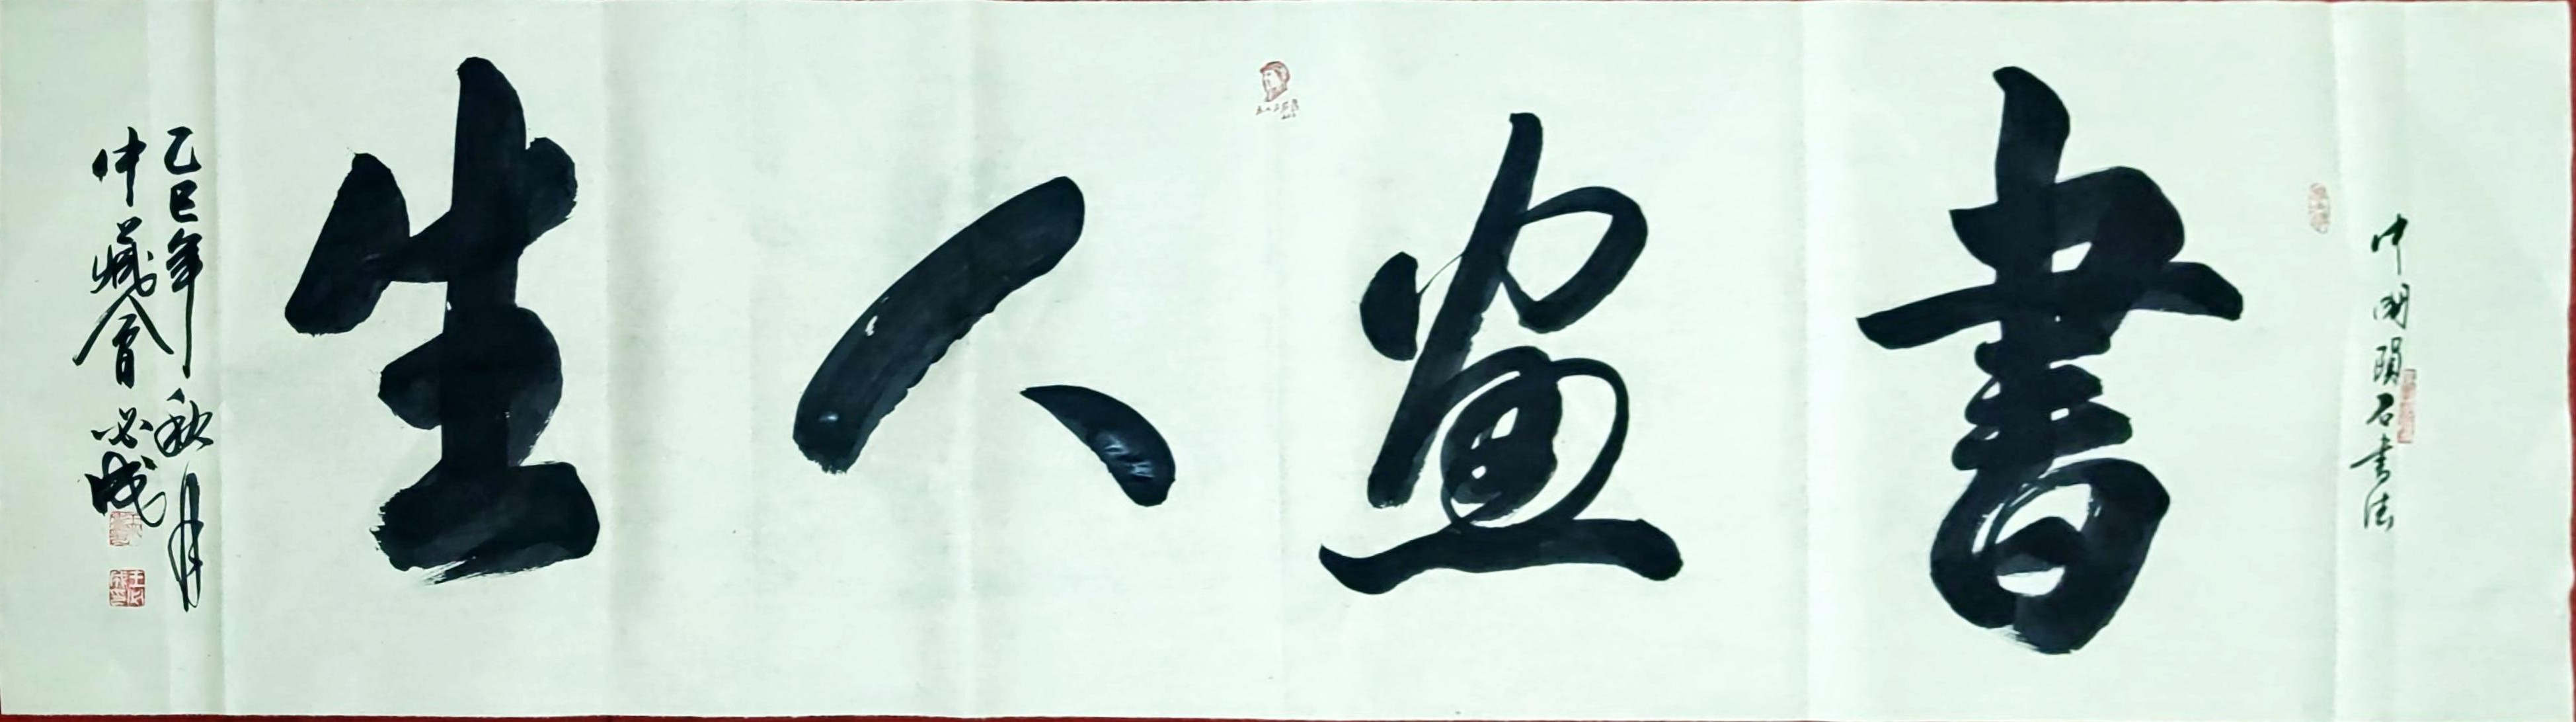 中國隕石書法
書畫人生
乙巳年秋月
中藏會必成